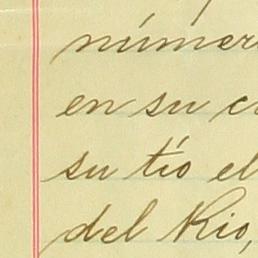 númer
en su c
su tío el
del Rio,